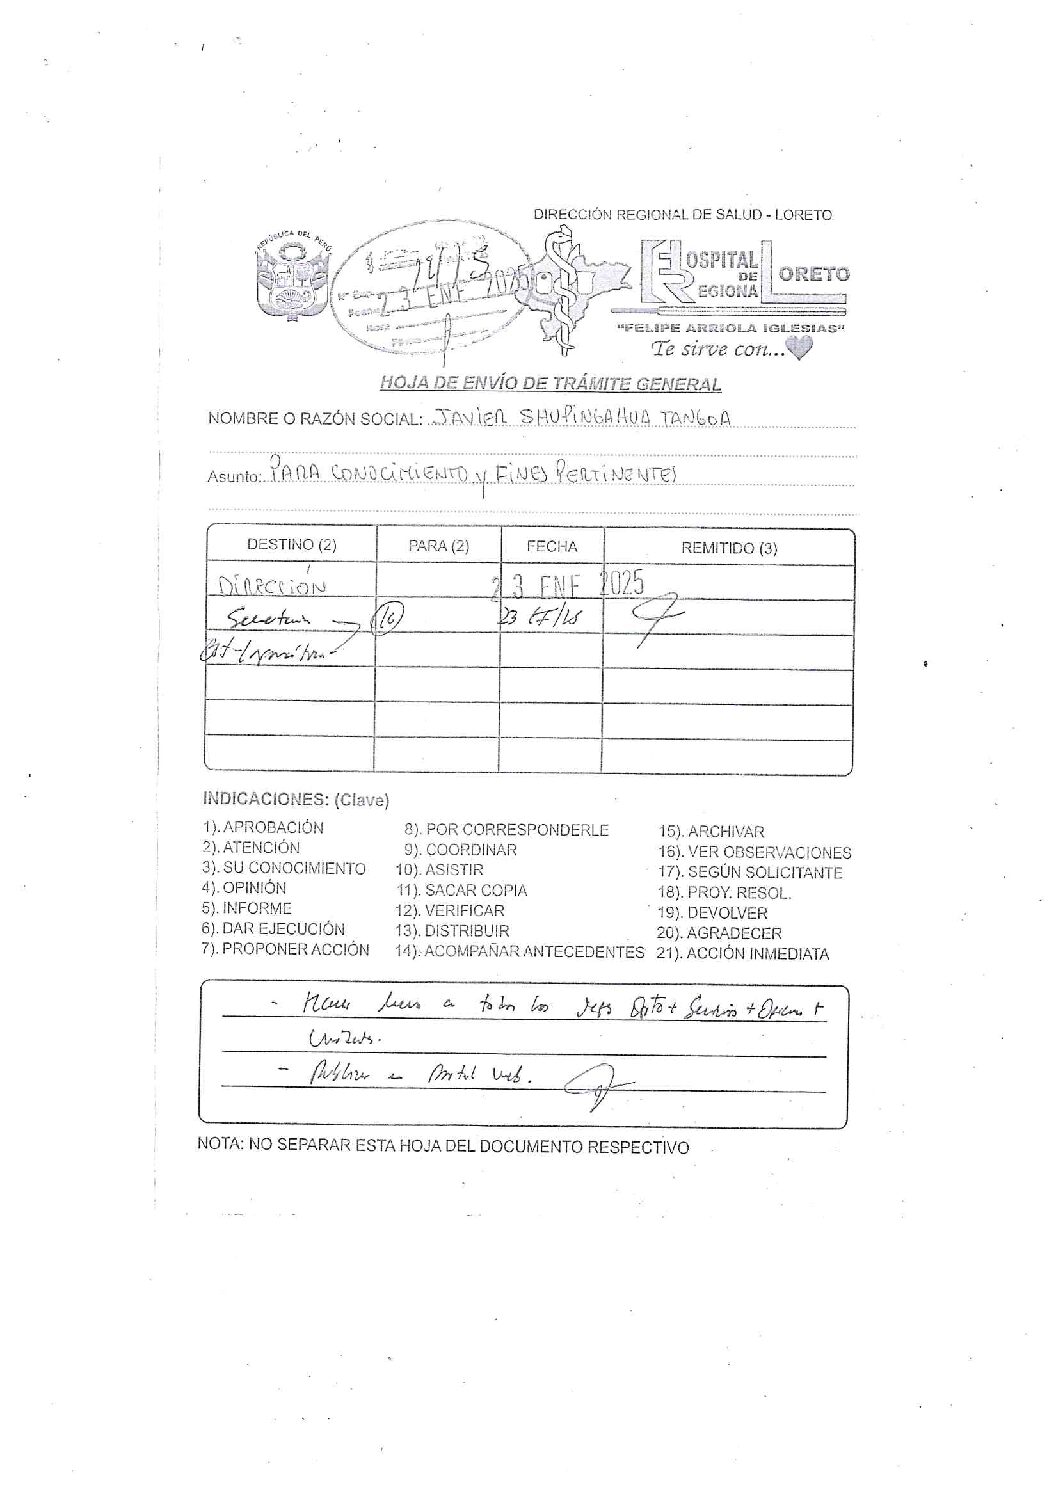 DIRECCIÓN REGIONAL DE SALUD - LORETO
REPÚBLICA DEL PERÚ
HOSPITAL
DE LORETO
REGIONAL
"FELIPE ARRIOLA IGLESIAS"
Te sirve con...
23 ENE 2025
HOJA DE ENVÍO DE TRÁMITE GENERAL
NOMBRE O RAZÓN SOCIAL: JAVIER SHUPINGAHUA TANGOA
Asunto: PARA CONOCIMIENTO y FINES PERTINENTES
DESTINO (2) PARA (2) FECHA REMITIDO (3)
DIRECCIÓN 23 ENE 2025
23
INDICACIONES: (Clave)
1). APROBACIÓN 8). POR CORRESPONDERLE 15). ARCHIVAR
2). ATENCIÓN 9). COORDINAR 16). VER OBSERVACIONES
3). SU CONOCIMIENTO 10). ASISTIR 17). SEGÚN SOLICITANTE
4). OPINIÓN 11). SACAR COPIA 18). PROY. RESOL.
5). INFORME 12). VERIFICAR 19). DEVOLVER
6). DAR EJECUCIÓN 13). DISTRIBUIR 20). AGRADECER
7). PROPONER ACCIÓN 14). ACOMPAÑAR ANTECEDENTES 21). ACCIÓN INMEDIATA
- a todos los Jefs Dpto +
- Portal Web.
NOTA: NO SEPARAR ESTA HOJA DEL DOCUMENTO RESPECTIVO